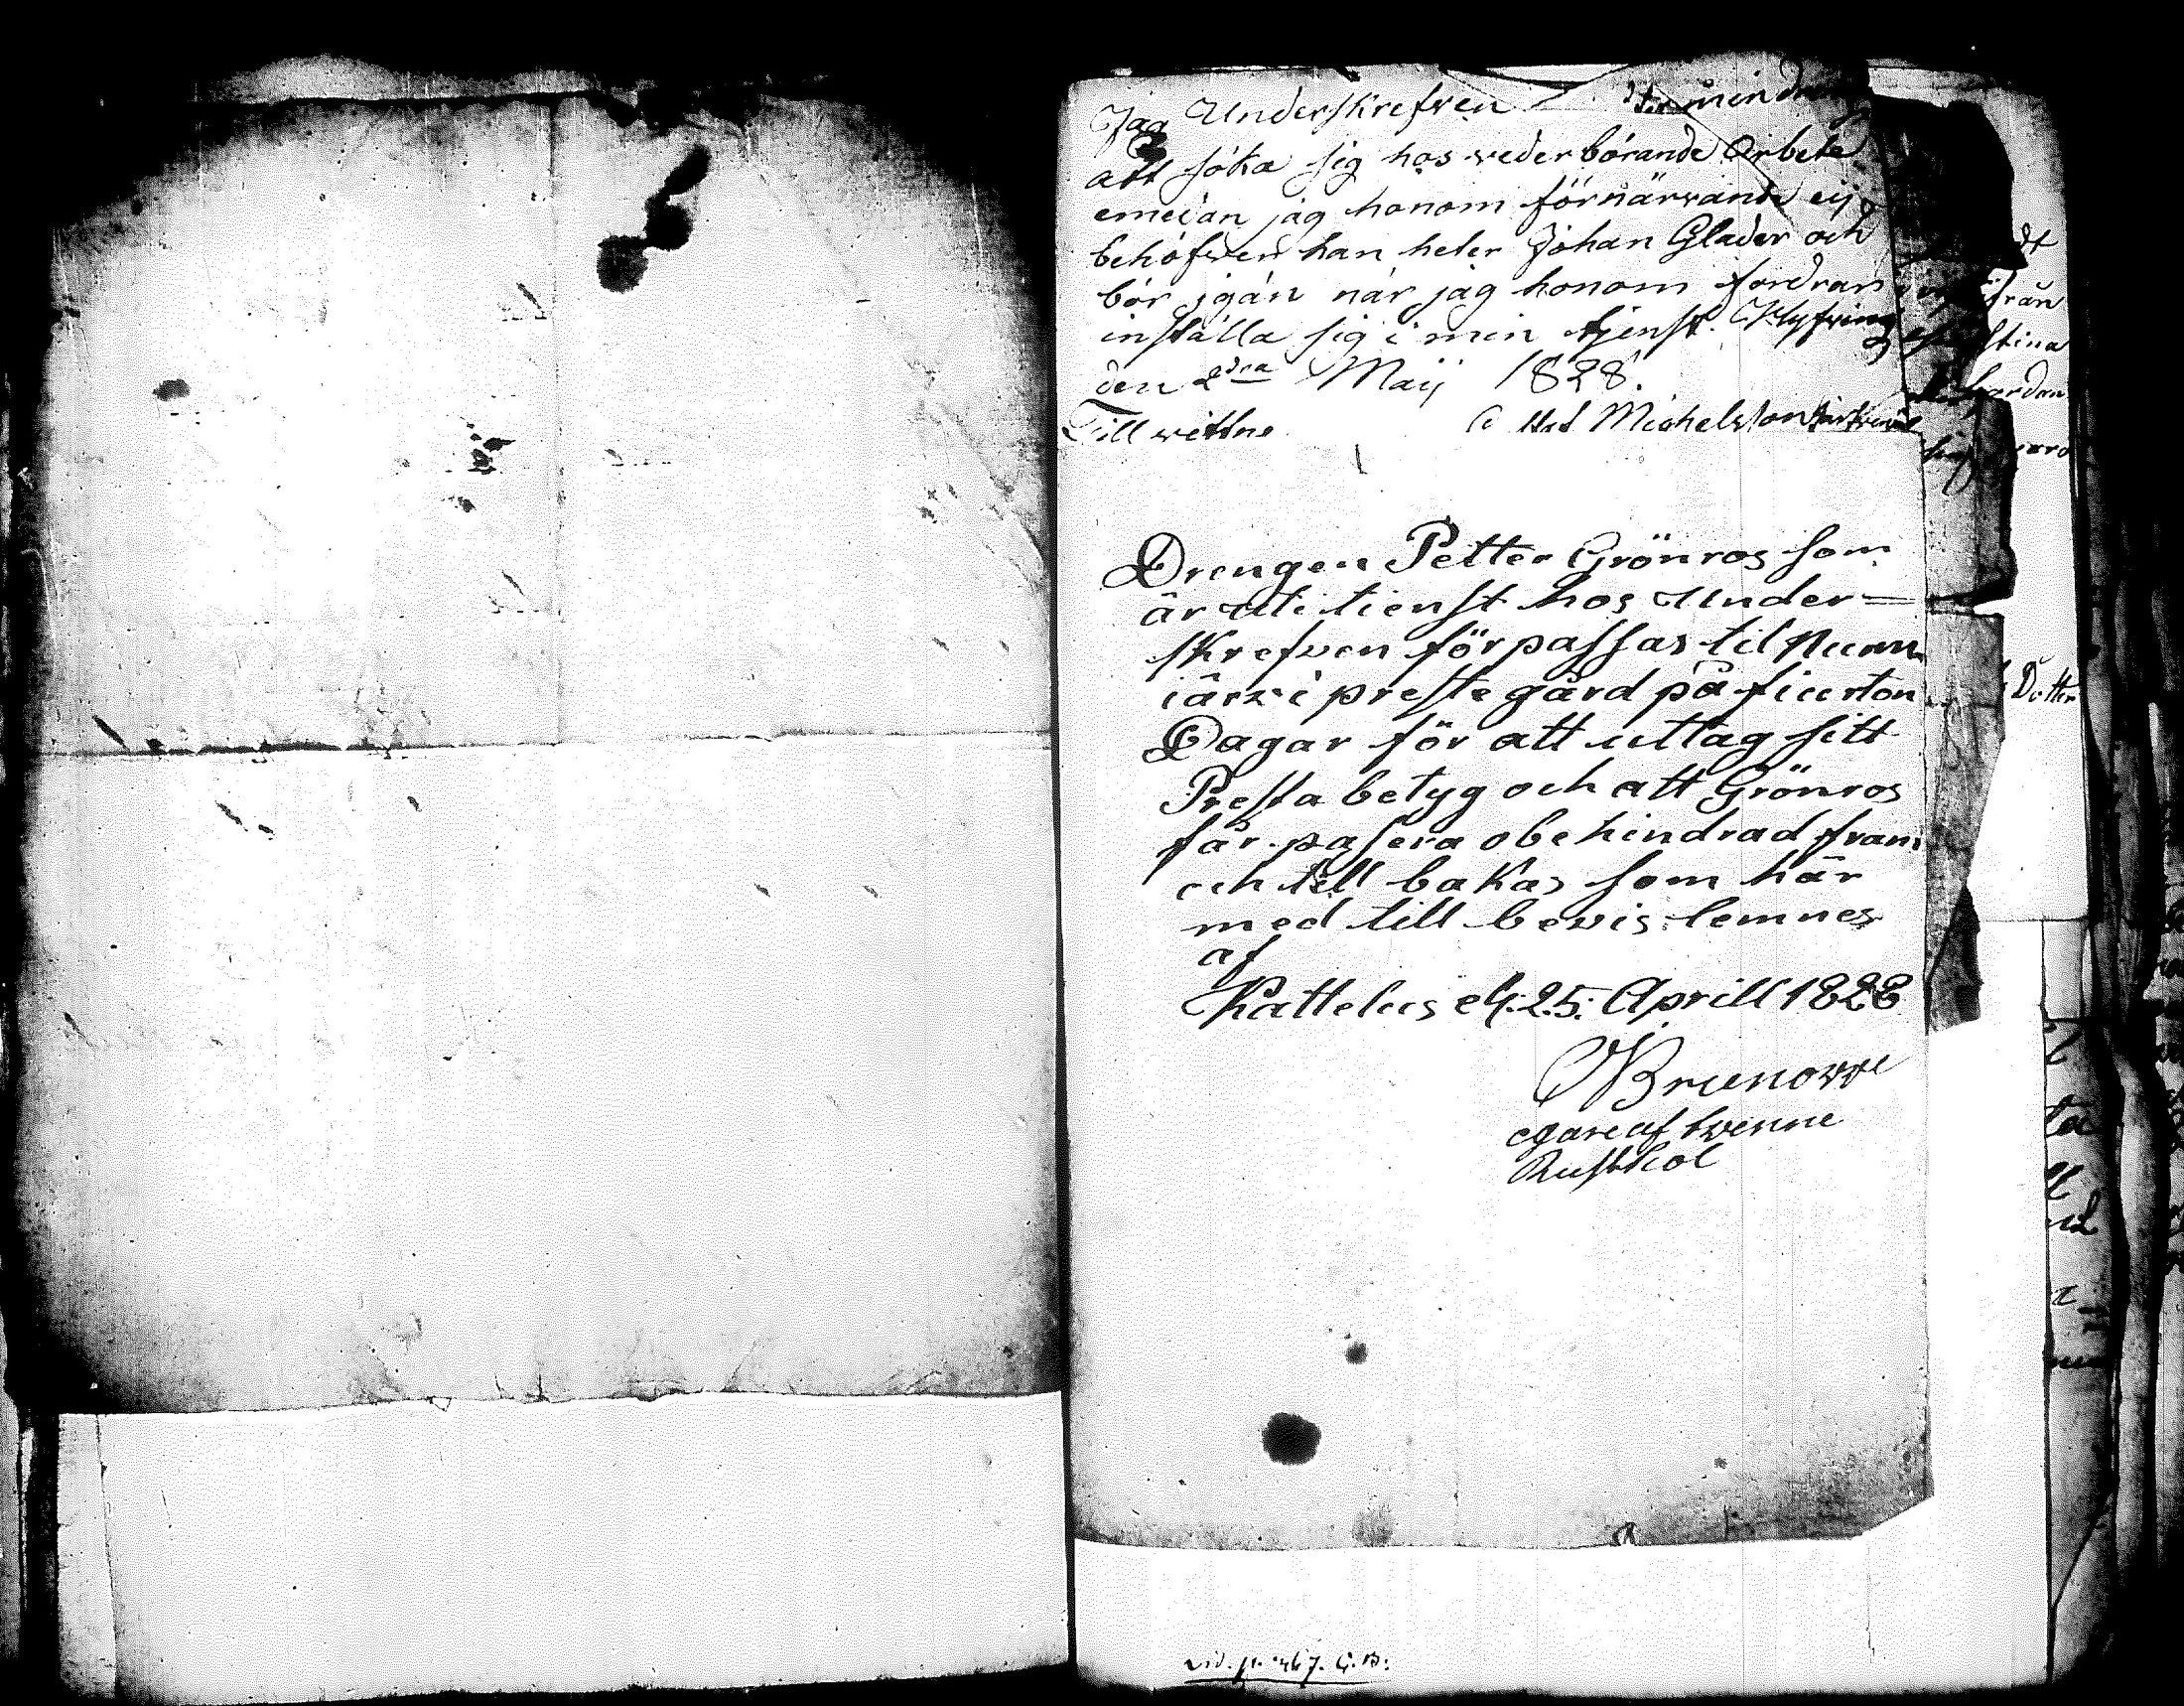 Jag Underskrefven min dräng
att söka sig hos vederbörande Arbete
emedan jag honom förnärvande eij
behöfver han heter Johan Glader och
bör jgän när jag honom fordrar
inställa sig i min tjenst. Klyfving
den 2dra Maij 1828.
Till vittne Michelsson
Drengen Petter Grönros som
är uti tienst hos Under=
skrefven förpassas til Num
iärvi preste gård på fiurton
Dagar för att uttag sitt
Presta betyg och att Grönros
får pasera obehindrad fram
och till bakas som här
med till bevis lemnes
af
Kattelus d. 25. Aprill 1828
Brunowe
egare af tvenne
Rusthol
från
stina
gordan
Dotter
vid. p. 467. G. B.